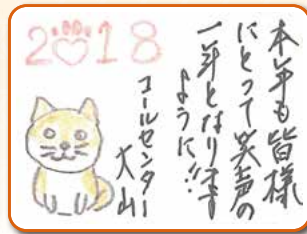 2018
本年も皆様
にとって笑声の
一年となります
ように!!
コールセンター
大山